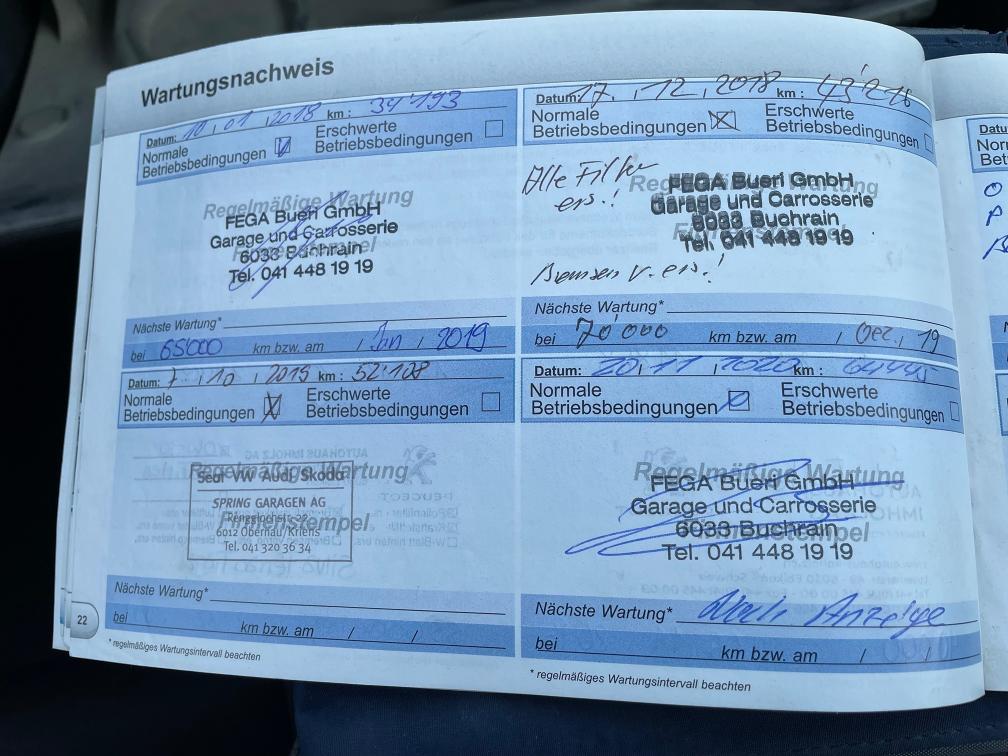 Wartungsnachweis
Datum: 10.01.2018 km: 34'193
Normale Betriebsbedingungen
Erschwerte Betriebsbedingungen
Regelmäßige Wartung
Firmenstempel
FEGA Bueri GmbH
Garage und Carrosserie
6033 Buchrain
Tel. 041 448 19 19
Nächste Wartung*
bei 65'000 km bzw. am / Jan / 2019
Datum: 17.12.2018 km: 43'216
Normale Betriebsbedingungen
Erschwerte Betriebsbedingungen
Alle Filter
ers.!
Regelmäßige Wartung
FEGA Bueri GmbH
Garage und Carrosserie
6033 Buchrain
Tel. 041 448 19 19
Bremsen v. ers.!
Nächste Wartung*
bei 70'000 km bzw. am / Dez. / 19
Datum: 7.10.2019 km: 52'108
Normale Betriebsbedingungen
Erschwerte Betriebsbedingungen
Regelmäßige Wartung
Firmenstempel
Seat VW Audi Skoda
SPRING GARAGEN AG
6012 Obernau/Kriens
Tel. 041 320 36 34
Nächste Wartung*
bei km bzw. am / /
* regelmäßiges Wartungsintervall beachten
22
Datum: 20.11.2020 km: 64445
Normale Betriebsbedingungen
Erschwerte Betriebsbedingungen
Regelmäßige Wartung
Firmenstempel
FEGA Bueri GmbH
Garage und Carrosserie
6033 Buchrain
Tel. 041 448 19 19
Nächste Wartung* Nach Anzeige
bei km bzw. am / /
* regelmäßiges Wartungsintervall beachten